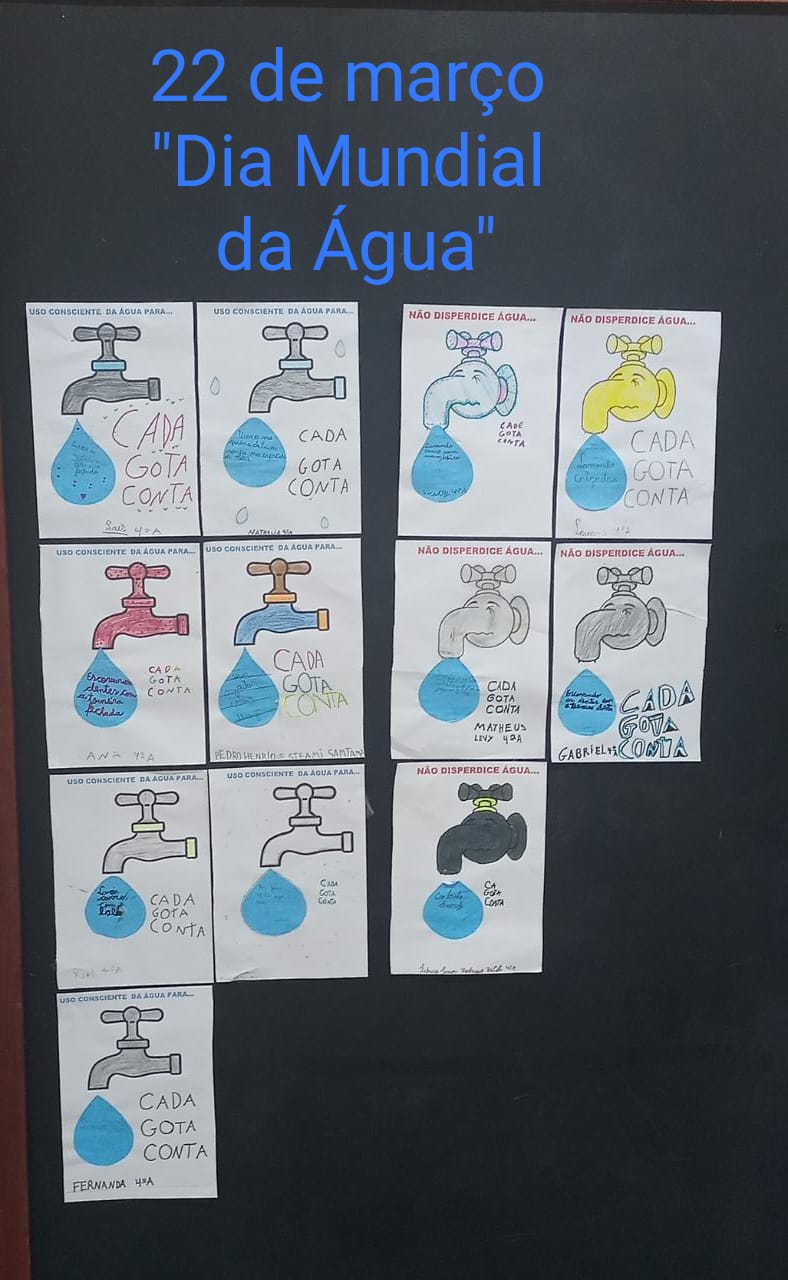 22 de março
"Dia Mundial
da Água"
USO CONSCIENTE DA ÁGUA PARA...
CADA
GOTA
CONTA
4ºA
USO CONSCIENTE DA ÁGUA PARA...
CADA
GOTA
CONTA
NATHALIA 4ºA
NÃO DISPERDICE ÁGUA...
CADE
GOTA
CONTA
NÃO DISPERDICE ÁGUA...
Lavando
calçadas
CADA
GOTA
CONTA
USO CONSCIENTE DA ÁGUA PARA...
Escovar os
dentes com
a torneira
fechada
CADA
GOTA
CONTA
ANA 4ºA
USO CONSCIENTE DA ÁGUA PARA...
CADA
GOTA
CONTA
PEDRO HENRIQUE
NÃO DISPERDICE ÁGUA...
CADA
GOTA
CONTA
MATHEUS
LEVY 4ºA
NÃO DISPERDICE ÁGUA...
Escovando
os dentes com
a torneira aberta
CADA
GOTA
CONTA
GABRIEL
USO CONSCIENTE DA ÁGUA PARA...
CADA
GOTA
CONTA
4ºA
USO CONSCIENTE DA ÁGUA PARA...
CADA
GOTA
CONTA
NÃO DISPERDICE ÁGUA...
CA
GOTA
CONTA
USO CONSCIENTE DA ÁGUA PARA...
CADA
GOTA
CONTA
FERNANDA 4ºA